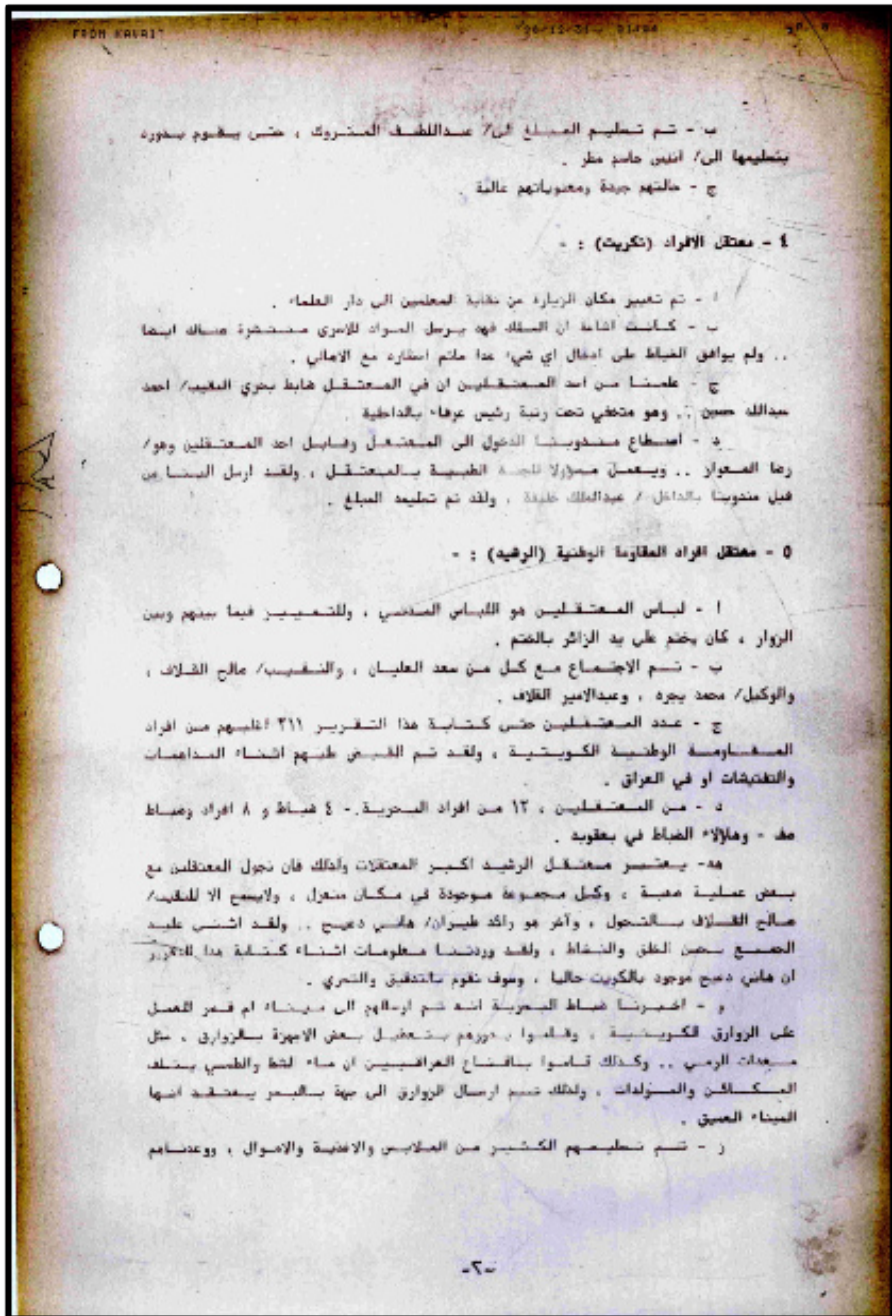 FROM KUWAIT
ب - تم تسليم المبلغ الى/ عبداللطيف المتروك ، حتى يقوم بدوره
بتسليمها الى/ انيس جاسم مطر .
ج - حالتهم جيدة ومعنوياتهم عالية .
٤ - معتقل الافراد (تكريت) : -
ا - تم تغيير مكان الزيارة من نقابة المعلمين الى دار العلماء .
ب - كانت اشاعة ان الملك فهد يرسل المواد للاسرى منتشرة هناك ايضا
.. ولم يوافق الضباط على ادخال اي شيء عدا ماتم احضاره مع الاهالي .
ج - علمنا من احد المعتقلين ان في المعتقل ضابط بحري النقيب/ احمد
عبدالله حسين .. وهو متخفي تحت رتبة رئيس عرفاء بالداخلية .
د - استطاع مندوبنا الدخول الى المعتقل وقابل احد المعتقلين وهو/
رضا .. ويعمل مسؤولا للجنة الطبية بالمعتقل ، ولقد ارسل الينا من
قبل مندوبنا بالداخل / عبدالملك خليفة . ولقد تم تسليمه المبلغ
٥ - معتقل افراد المقاومة الوطنية (الرشيد) : -
ا - لباس المعتقلين هو اللباس المدني ، وللتمييز فيما بينهم وبين
الزوار ، كان يختم على يد الزائر بالختم .
ب - تم الاجتماع مع كل من سعد العليان ، والنقيب/ صالح القلاف ،
والوكيل/ محمد بجره ، وعبدالامير القلاف .
ج - عدد المعتقلين حتى كتابة هذا التقرير ٣١١ اغلبهم من افراد
المقاومة الوطنية الكويتية ، ولقد تم القبض عليهم اثناء المداهمات
والتفتيشات أو في العراق .
د - من المعتقلين ، ١٢ من افراد البحرية - ٤ ضباط و ٨ افراد وضباط
صف - وهاؤلاء الضباط في بعقوبه .
هد- يعتبر معتقل الرشيد اكبر المعتقلات ولذلك فان تجول المعتقلين مع
بعض عملية صعبة ، وكل مجموعة موجودة في مكان منعزل ، ولايسمح الا للنقيب/
صالح القلاف بالتجول ، وآخر هو رائد طيران/ هاني دعيج .. ولقد اثنى عليه
الجميع بحسن الخلق والنشاط ، ولقد وردتنا معلومات اثناء كتابة هذا التقرير
ان هاني دعيج موجود بالكويت حاليا ، وسوف نقوم بالتدقيق والتحري .
و - اخبرنا ضباط البحرية انه تم ارسالهم الى ميناء ام قصر للعمل
على الزوارق الكويتية ، وقاموا بدورهم بتعطيل بعض الاجهزة بالزوارق ، مثل
معدات الرمي .. وكذلك قاموا باقناع العراقيين ان ماء الشط والطمي يتلف
المكائن والمولدات ، ولذلك تم ارسال الزوارق الى جهة بالبحر يعتقد انها
الميناء العميق .
ز - تم تسليمهم الكثير من الملابس والاغذية والاموال ، ووعدناهم
-٢-